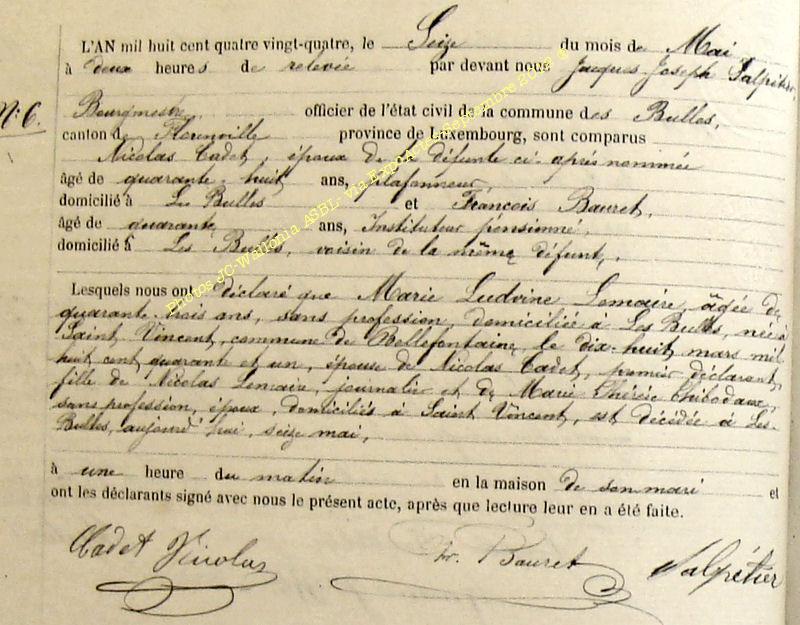 L'AN mil huit cent quatre vingt-quatre, le Seize du mois de Mai
à deux heures de relevée par devant nous Jacques Joseph Salpétier,
N: 6.
Bourgmestre officier de l'état civil de la commune des Bulles,
canton de Florenville province de Luxembourg, sont comparus
Nicolas Cadet, époux de la défunte ci-après nommée
âgé de quarante-huit ans, plafonneur,
domicilié à Les Bulles et François Bauret,
âgé de quarante ans, Instituteur pensionné,
domicilié à Les Bulles, voisin de la même défunte,
Lesquels nous ont déclaré que Marie Ludvine Lemaire, âgée de
quarante-trois ans, sans profession, domiciliée à Les Bulles, née à
Saint Vincent, commune de Bellefontaine, le dix-huit mars mil
huit cent quarante et un, épouse de Nicolas Cadet, premier déclarant,
fille de Nicolas Lemaire, journalier et de Marie Thérèse Thibodaux,
sans profession, époux, domiciliés à Saint Vincent, est décédée à Les-
Bulles, aujourd'hui, seize mai,
à une heure du matin en la maison de son mari et
ont les déclarants signé avec nous le présent acte, après que lecture leur en a été faite.
Cadet Nicolas Fr. Bauret Salpétier
Photos JC-Wallonia ASBL via